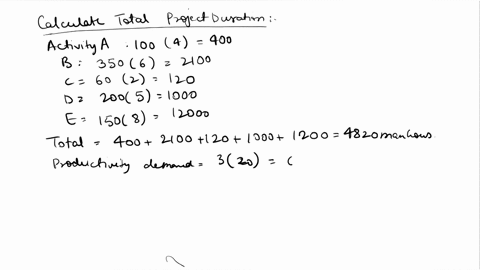 Calculate Total Project Duration:-
Activity A . 100 (4) = 400
B: 350 (6) = 2100
C = 60 (2) = 120
D= 200(5) = 1000
E= 150(8) = 12000
Total = 400 + 2100 +120 + 1000 + 1200 = 4820 manhous.
Productivity demand = 3(20) = (